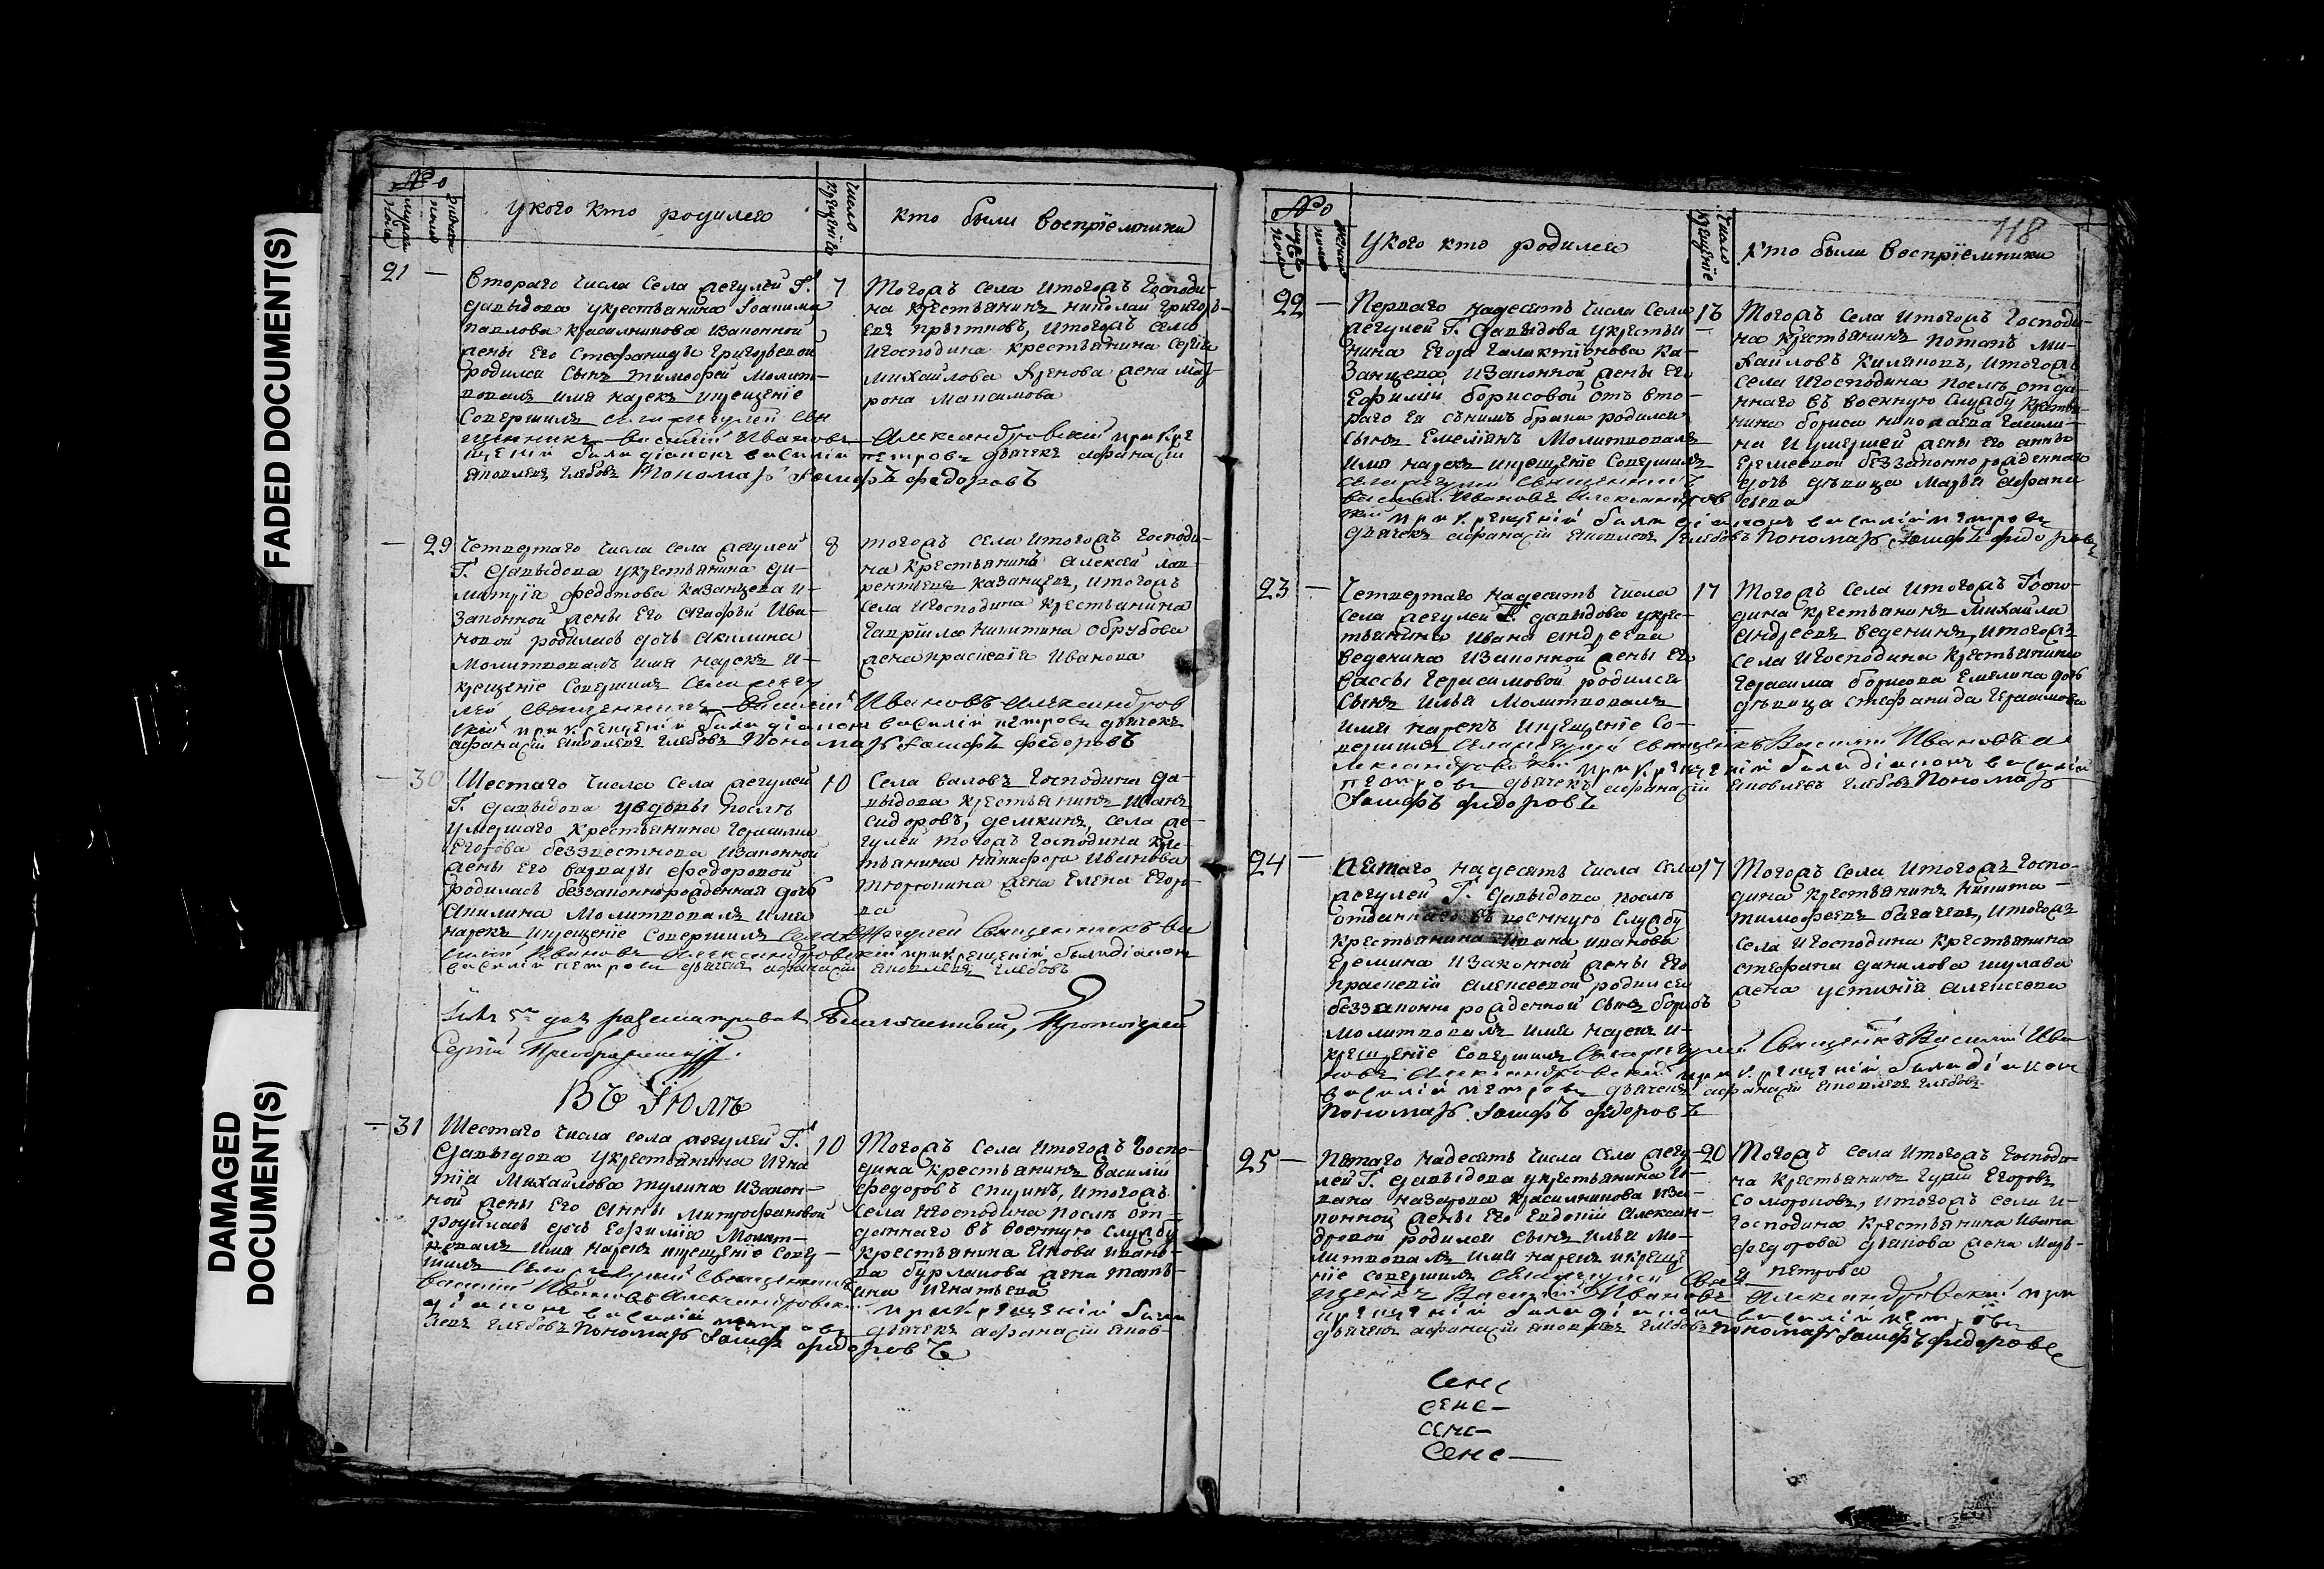 FADED DOCUMENT(S)
DAMAGED
DOCUMENT(S)
№
мужеска пола
женска пола
у кого кто родился
число крещенія
кто были воспріемники
21 —
Втораго числа села Жегулей Г.
Давыдова у крестьянина Іоакима
Павлова Красильникова и законной
жены его Стефаниды Григорьевой
родился сынъ Тимофей молит-
вовалъ имя нарекъ и крещеніе
совершилъ села Жегулей свя
щенникъ Василій Ивановъ Александровскій при кре
щеніи были діаконъ Василій Петровъ дьячекъ Афанасій
Яковлевъ Глебовъ Пономарь Іосифъ Федоровъ
7
Тогожъ села и тогожъ Господи-
на крестьянинъ Николай Григорь-
евъ, и тогожъ села
и Господина крестьянина Сергія
Михайлова жена Мат-
рона Максимова
— 29
Четвертаго числа села Жегулей
Г. Давыдова у крестьянина Ди-
митрія Федотова Казанцева и
законной жены его Агафьи Ива-
новой родилась дочь Акилина
молитвовалъ имя нарекъ и
крещеніе совершилъ села Жегу
лей священникъ Василій Ивановъ Александров
скій при крещеніи были діаконъ Василій Петровъ дьячекъ
Афанасій Яковлевъ Глебовъ Пономарь Іосифъ Федоровъ
8
тогожъ села и тогожъ Господи-
на крестьянинъ Алексей Лав-
рентьевъ Казанцевъ, и тогожъ
села и Господина крестьянина
Гавріила Никитина Обрубова
жена Праскевія Иванова
— 30
Шестаго числа села Жегулей
Г. Давыдова у вдовы после
умершаго крестьянина Герасима
Егорова и законной
жены его Варвары Федоровой
родилась беззаконнорожденная дочь
Акилина молитвовалъ имя
нарекъ и крещеніе совершилъ села Жегулей Священникъ Ва
силій Ивановъ Александровскій при крещеніи были діаконъ
Василій Петровъ дьячекъ Афанасій Яковлевъ Глебовъ
10
Села Валовъ Господина Да-
выдова крестьянинъ Иванъ
Сидоровъ, Демкинъ, села Же-
гулей тогожъ Господина крес-
тьянина Никифора Иванова
Тюрюпина жена Елена Егоро-
ва
разсматривалъ Благочинный, Протоіерей
Сергій Преображенскій.
Въ Іюлѣ
— 31
Шестаго числа села Жегулей Г.
Давыдова у крестьянина Игна
тія Михайлова Тулина и закон-
ной жены его Анны Митрофановой
родилась дочь Евфимія молит-
вовалъ имя нарекъ и крещеніе совер-
шилъ села Жегулей Священникъ
Василій Ивановъ Александровскій при крещеніи были
діаконъ Василій Петровъ дьячекъ Афанасій Яков-
левъ Глебовъ Пономарь Іосифъ Федоровъ
10
Тогожъ села и тогожъ Госпо-
дина крестьянинъ Василій
Федоровъ Спиринъ, и тогожъ
села и Господина после от-
даннаго въ военную службу
крестьянина Якова Ивано-
ва Бурлакова жена Тать-
яна Игнатьева
118
№
мужеска пола
женска пола
У кого кто родился
число крещеніе
Кто были Воспріемники
22 —
Перваго надесять числа села
Жегулей Г. Давыдова у крестья-
нина Егора Галактіонова Ка-
занцева и законной жены его
Ефиміи Борисовой отъ вто-
раго ея съ нимъ брака родился
сынъ Емеліянъ молитвовалъ
имя нарекъ и крещеніе совершилъ
села Жегулей Священникъ
Василій Ивановъ Александров
скій при крещеніи были діаконъ Василій Петровъ
дьячекъ Афанасій Яковлевъ Глебовъ Пономарь Іосифъ Федоровъ
Тогожъ села и тогожъ Господи-
на крестьянинъ Потапъ Ми-
хайловъ, и тогожъ
села и Господина после отда-
ннаго въ военную службу крестья-
нина Бориса Николаева
и умершей жены его Анны
Еремеевой беззаконнорожденная
дочь девица Марья Афана
сьева
23 —
Четвертаго надесять числа
села Жегулей Г. Давыдова у крес-
тьянина Ивана Андреева
Веденина и законной жены его
Вассы Герасимовой родился
сынъ Илья молитвовалъ
имя нарекъ и крещеніе со-
вершилъ села Жегулей Священникъ Василій Ивановъ А
лександровскій при крещеніи были діаконъ Василій
Петровъ дьячекъ Афанасій Яковлевъ Глебовъ Пономарь
Іосифъ Федоровъ
17
Тогожъ села и тогожъ Госпо-
дина крестьянинъ Михайла
Андреевъ Веденинъ, и тогожъ
села и Господина крестьянина
Герасима Борисова Емелина дочь
девица Стефанида Герасимова
24 —
Пятаго надесять числа села
Жегулей Г. Давыдова после
отданнаго въ военную службу
крестьянина Ивана Иванова
Еремина и законной жены его
Праскевіи Алексеевой родился
беззаконно рожденной сынъ Борисъ
молитвовалъ имя нарекъ и
крещеніе совершилъ села Жегулей Священникъ Василій Ива
новъ Александровскій при крещеніи были діаконъ
Василій Петровъ дьячекъ Афанасій Яковлевъ Глебовъ
Пономарь Іосифъ Федоровъ
17
Тогожъ села и тогожъ Госпо-
дина крестьянинъ Никита
Тимофеевъ, и тогожъ
села и Господина крестьянина
Стефана Данилова Шулава
жена Устинія Алексеева
25 —
Пятаго надесять числа села Жегу-
лей Г. Давыдова у крестьянина И-
вана Назарова Красильникова и за-
конной жены его Евдокіи Алексан-
дровой родился сынъ Илья мо-
литвовалъ имя нарекъ и креще
ніе совершилъ села Жегулей Свя
щенникъ Василій Ивановъ Александровскій при
крещеніи были діаконъ Василій Петровъ
дьячекъ Афанасій Яковлевъ Глебовъ Пономарь Іосифъ Федоровъ
20
Тогожъ села и тогожъ Господи-
на крестьянинъ Гурій Егоровъ
Соморовъ, и тогожъ села и
Господина крестьянина Ивана
Федорова Дьякова жена Марь-
я Петрова